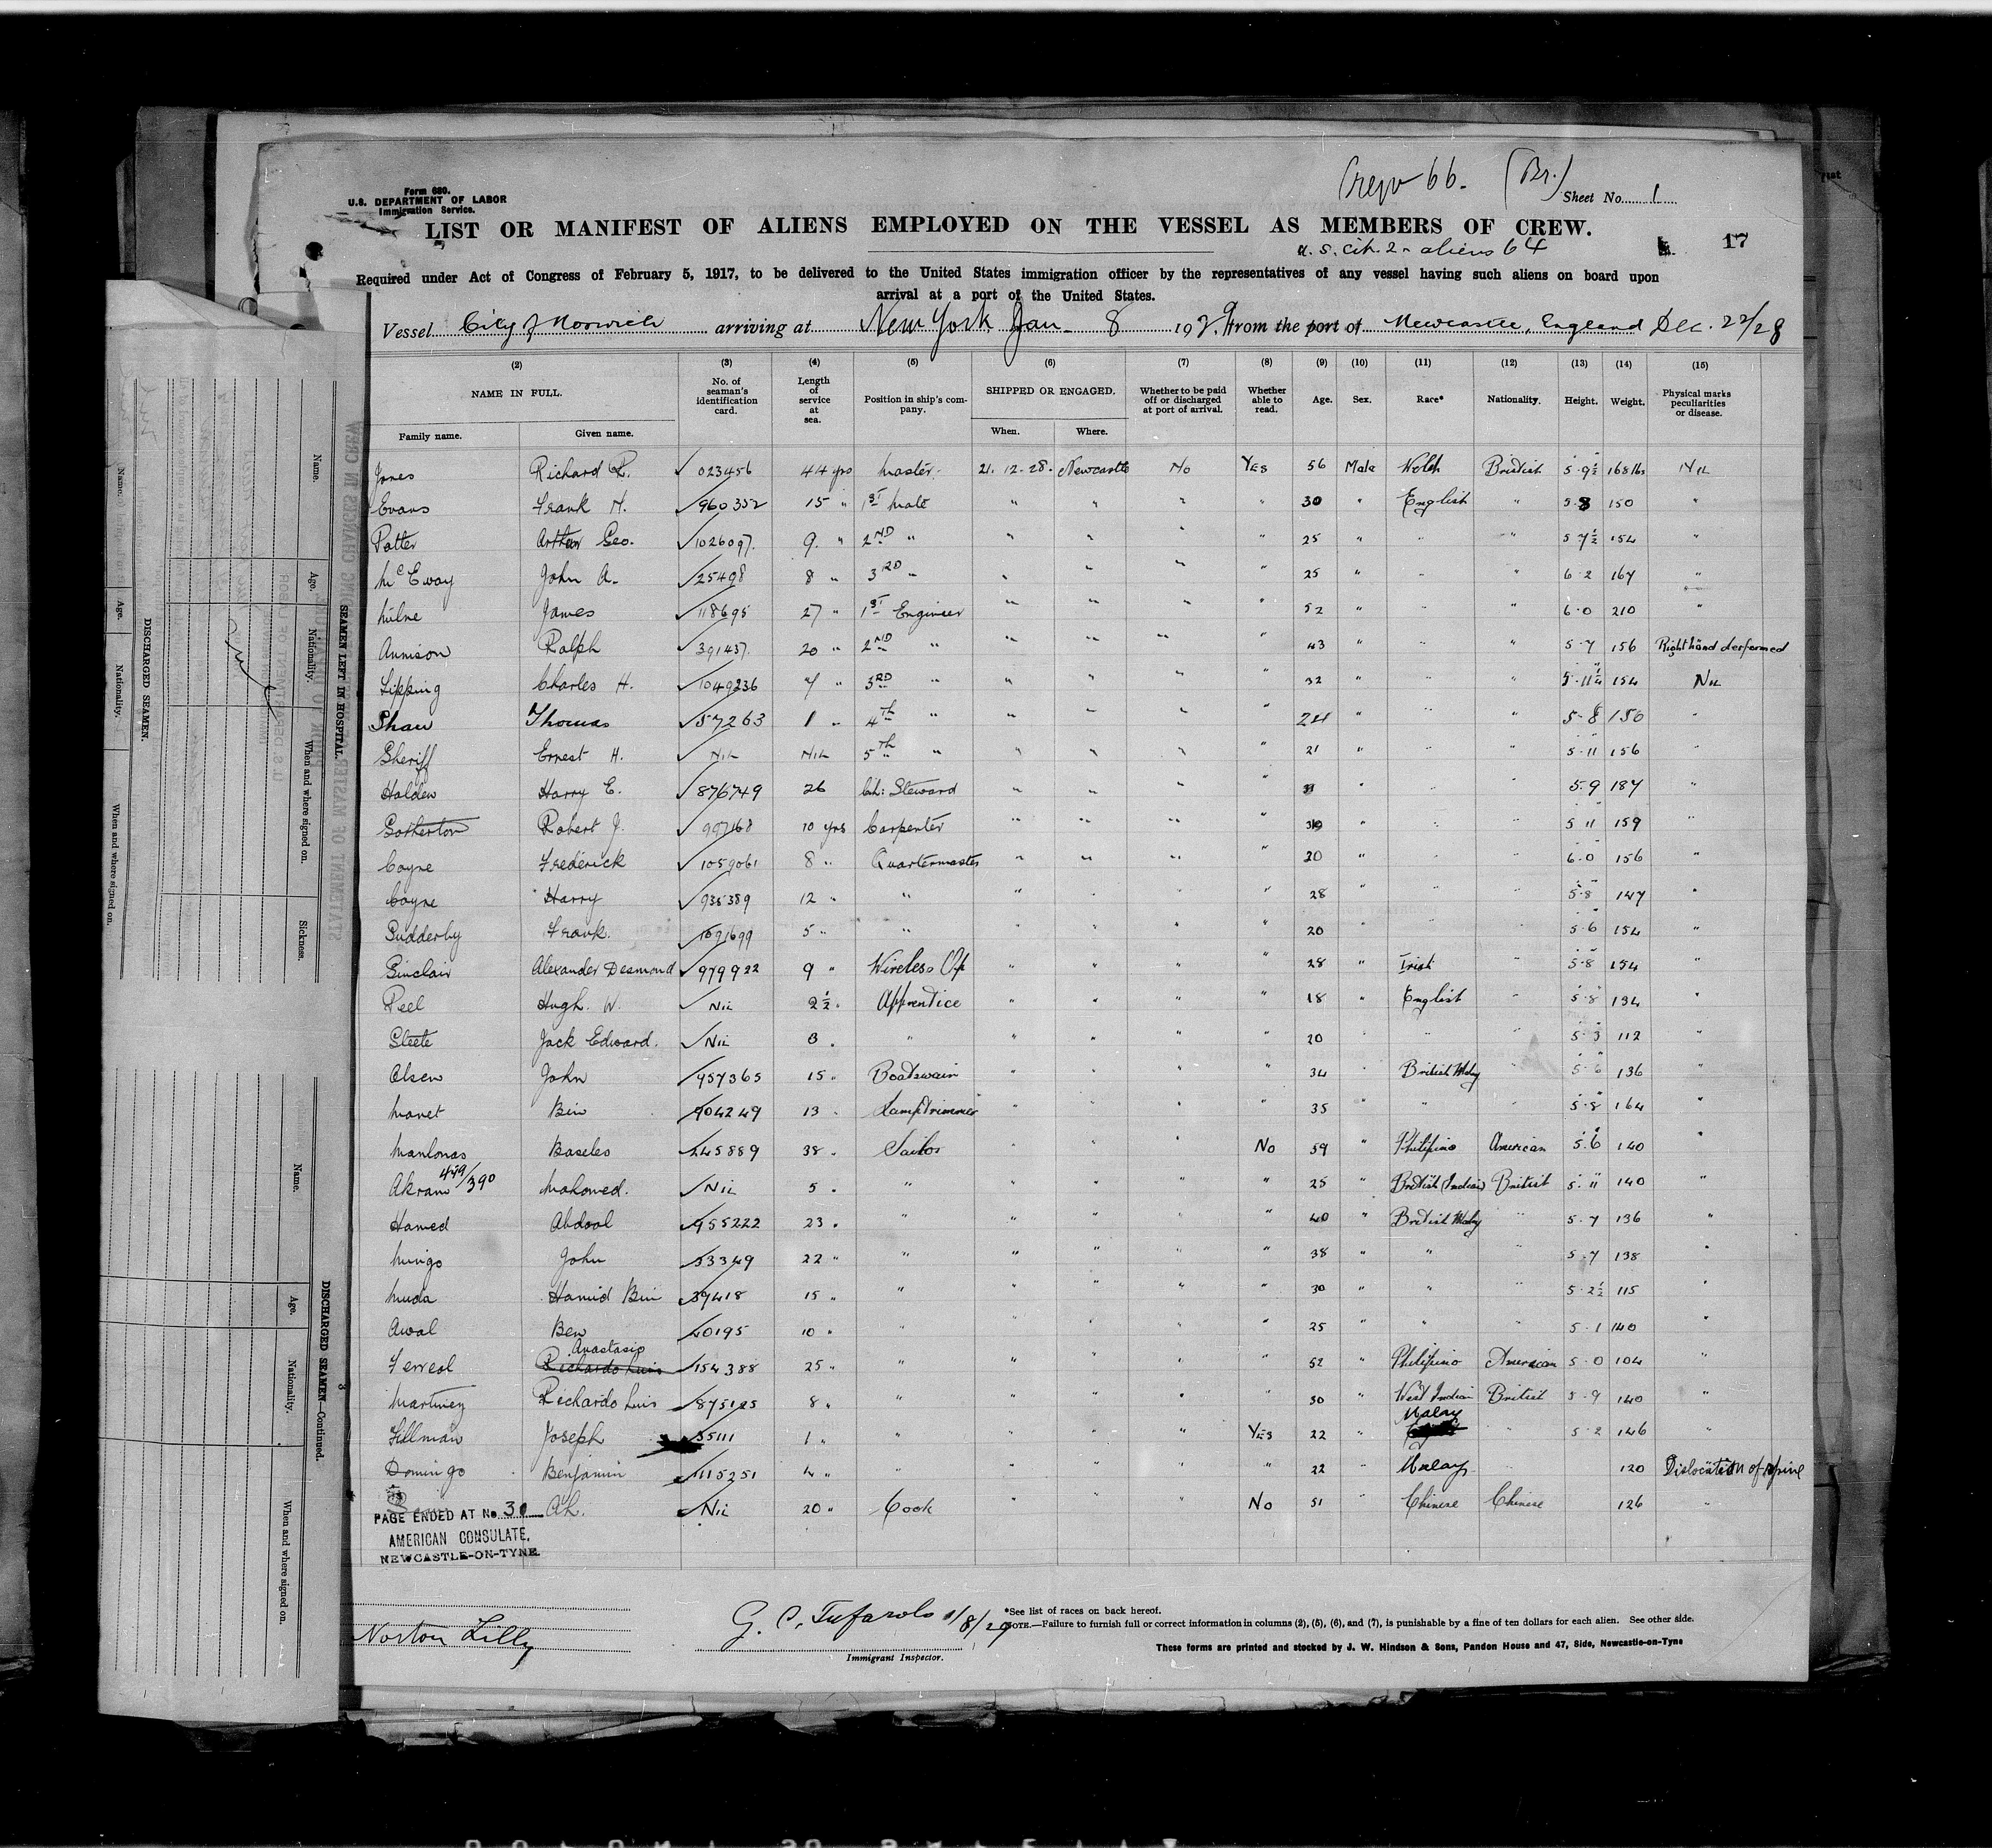 Crew 66. (Br.)
Form 680.
U.S. DEPARTMENT OF LABOR
Immigration Service.
Sheet No. 1
LIST OR MANIFEST OF ALIENS EMPLOYED ON THE VESSEL AS MEMBERS OF CREW.
u. s. cit. 2 - aliens 64
17
Required under Act of Congress of February 5, 1917, to be delivered to the United States immigration officer by the representatives of any vessel having such aliens on board upon
arrival at a port of the United States.
Vessel City of Norwich arriving at New York Jan 8 1929 from the port of Newcastle, England Dec. 22/28
(2) (3) (4) (5) (6) (7) (8) (9) (10) (11) (12) (13) (14) (15)
NAME IN FULL. No. of seaman's identification card. Length of service at sea. Position in ship's company. SHIPPED OR ENGAGED. Whether to be paid off or discharged at port of arrival. Whether able to read. Age. Sex. Race* Nationality. Height. Weight. Physical marks peculiarities or disease.
Family name. Given name. When. Where.
Jones Richard R. ✓ 023456 44 yrs Master 21.12.28. Newcastle No Yes 56 Male Welsh British 5·9½ 168 lbs Nil
Evans Frank H. ✓ 960352 15 " 1st Mate " " " " 30 " English " 5·8 150 "
Potter Arthur Geo. ✓ 1026097. 9. " 2ND " " " " " 25 " " " 5 7½ 154 "
McEwoy John A. ✓ 25498 8 " 3RD " " " " " 25 " " " 6·2 167 "
Milne James ✓ 118695 27 " 1st Engineer " " " " 52 " " " 6·0 210 "
Annison Ralph ✓ 391437. 20 " 2ND " " " " " 43 " " " 5·7 156 Right hand desformed
Lipping Charles H. ✓ 1049236 7 " 3RD " " " " " 32 " " " 5·11¼ 154 Nil
Shaw Thomas ✓ 57263 1 " 4th " " " " " 24 " " " 5·8 150 "
Sheriff Ernest H. ✓ Nil Nil 5th " " " " " 21 " " " 5·11 156 "
Holden Harry E. ✓ 876749 26 Ch: Steward " " " " " " " 5·9 187 "
Sotherton Robert J. ✓ 997168 10 yrs Carpenter " " " " " " " 5 11 159 "
Coyne Frederick ✓ 1059061 8 " Quartermaster " " " " 20 " " " 6·0 156 "
Coyne Harry ✓ 935389 12 " " " " " " 28 " " " 5·8 147 "
Sudderby Frank. ✓ 1091699 5 " " " " " " 20 " " " 5·6 154 "
Sinclair Alexander Desmond ✓ 979922 9 " Wireless Op " " " " 28 " Irish " 5·8 154 "
Peel Hugh. W. ✓ Nil 2½ " Apprentice " " " " 18 " English " 5·8 134 "
Steete Jack Edward. ✓ Nil 3 " " " " " " 20 " " " 5·3 112 "
Olsen John ✓ 957365 15 " Boatswain " " " " 34 " British Malay " 5·6 136 "
Manet Bin ✓ 904249 13 " Lamptrimmer " " " " 35 " " " 5·8 164 "
Manlonas Baseleo ✓ 245889 38 " Sailor " " " No 59 " Philipino American 5·6 140 "
449/390
Akram Mahomed. ✓ Nil 5 " " " " " " 25 " British (Indian) British 5·11 140 "
Hamed Abdool ✓ 955222 23 " " " " " " 40 " British Malay " 5·7 136 "
Mingo John ✓ 53349 22 " " " " " " 38 " " " 5·7 138 "
Muda Hamid Bin ✓ 39418 15 " " " " " " 30 " " " 5·2½ 115 "
Awal Ben ✓ 40195 10 " " " " " " 25 " " " 5·1 140 "
Anastasio
Ferreol Richardo Luis ✓ 154388 25 " " " " " " 52 " Philipino American 5·0 104 "
Martinez Richardo Luis ✓ 875125 8 " " " " " " 50 " West Indian British 5·9 140 "
Fillman Joseph ✓ 55111 1 " " " " " Yes 22 " Malay " 5·2 146 "
Domingo Benjamin ✓ 1115251 4 " " " " " " 22 " Malay " 120 Dislocation of spine
Ah. ✓ Nil 20 " Cook " " " No 51 " Chinese Chinese 126 "
PAGE ENDED AT No 30
AMERICAN CONSULATE,
NEWCASTLE-ON-TYNE
Norton Lilly
G. C. Tufarolo 1/8/29
Immigrant Inspector.
*See list of races on back hereof.
NOTE.—Failure to furnish full or correct information in columns (2), (5), (6), and (7), is punishable by a fine of ten dollars for each alien. See other side.
These forms are printed and stocked by J. W. Hindson & Sons, Pandon House and 47, Side, Newcastle-on-Tyne
SEAMEN LEFT IN HOSPITAL.
Name. Age. Nationality. When and where signed on. Sickness.
DISCHARGED SEAMEN.
Name. Age. Nationality. When and where signed on.
DISCHARGED SEAMEN—Continued.
Name. Age. Nationality. When and where signed on.
STATEMENT OF MASTER
CHANGES IN CREW